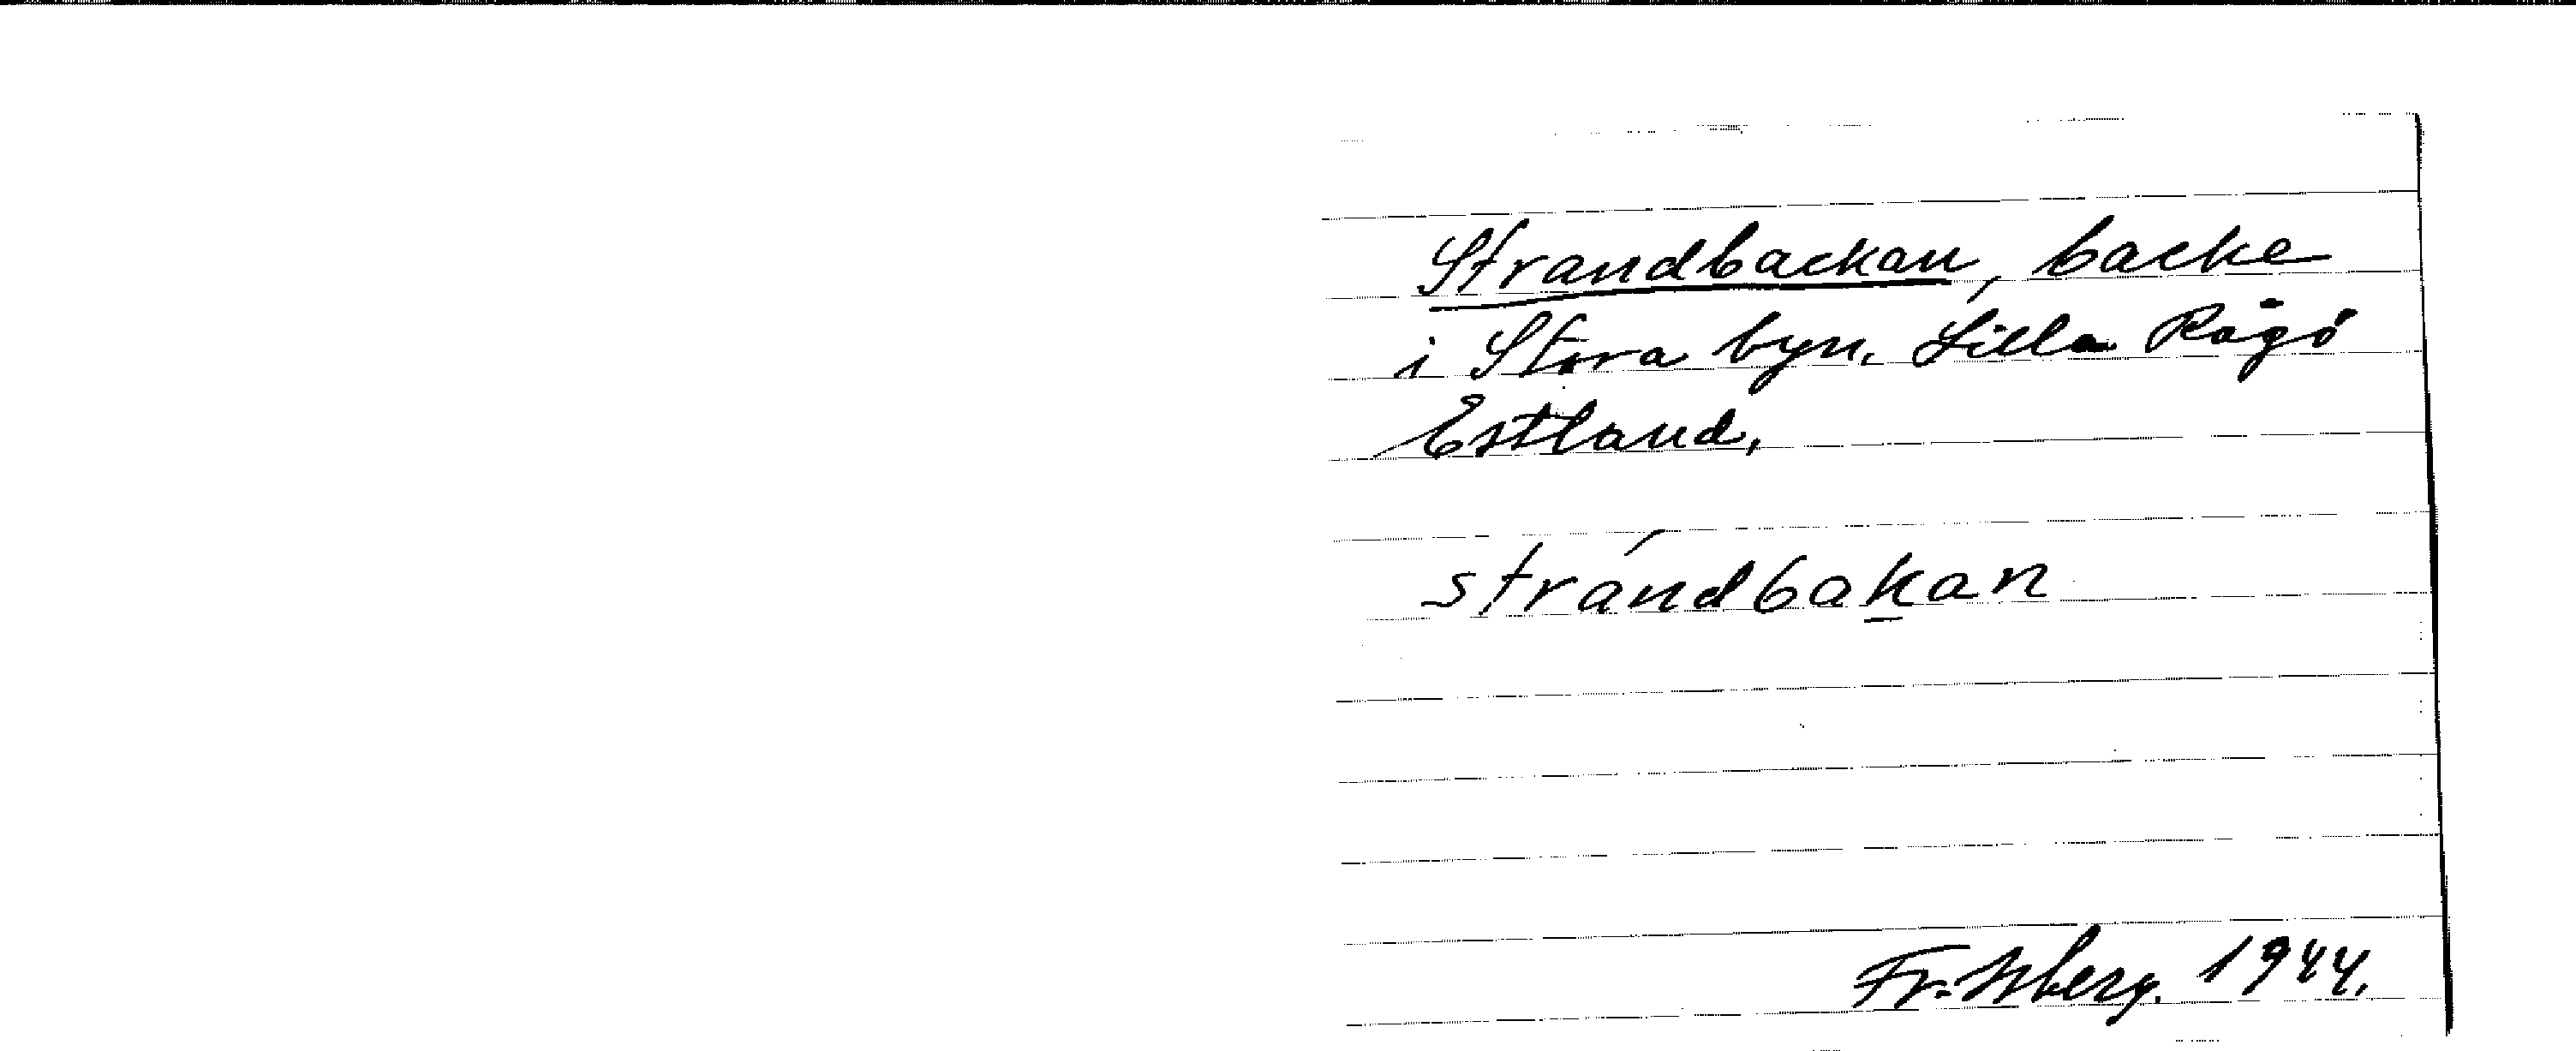 Strandbackan, backe
i Stora byn. Lilla Rågö
Estland,
strándbakan
Fr. Isberg. 1944.